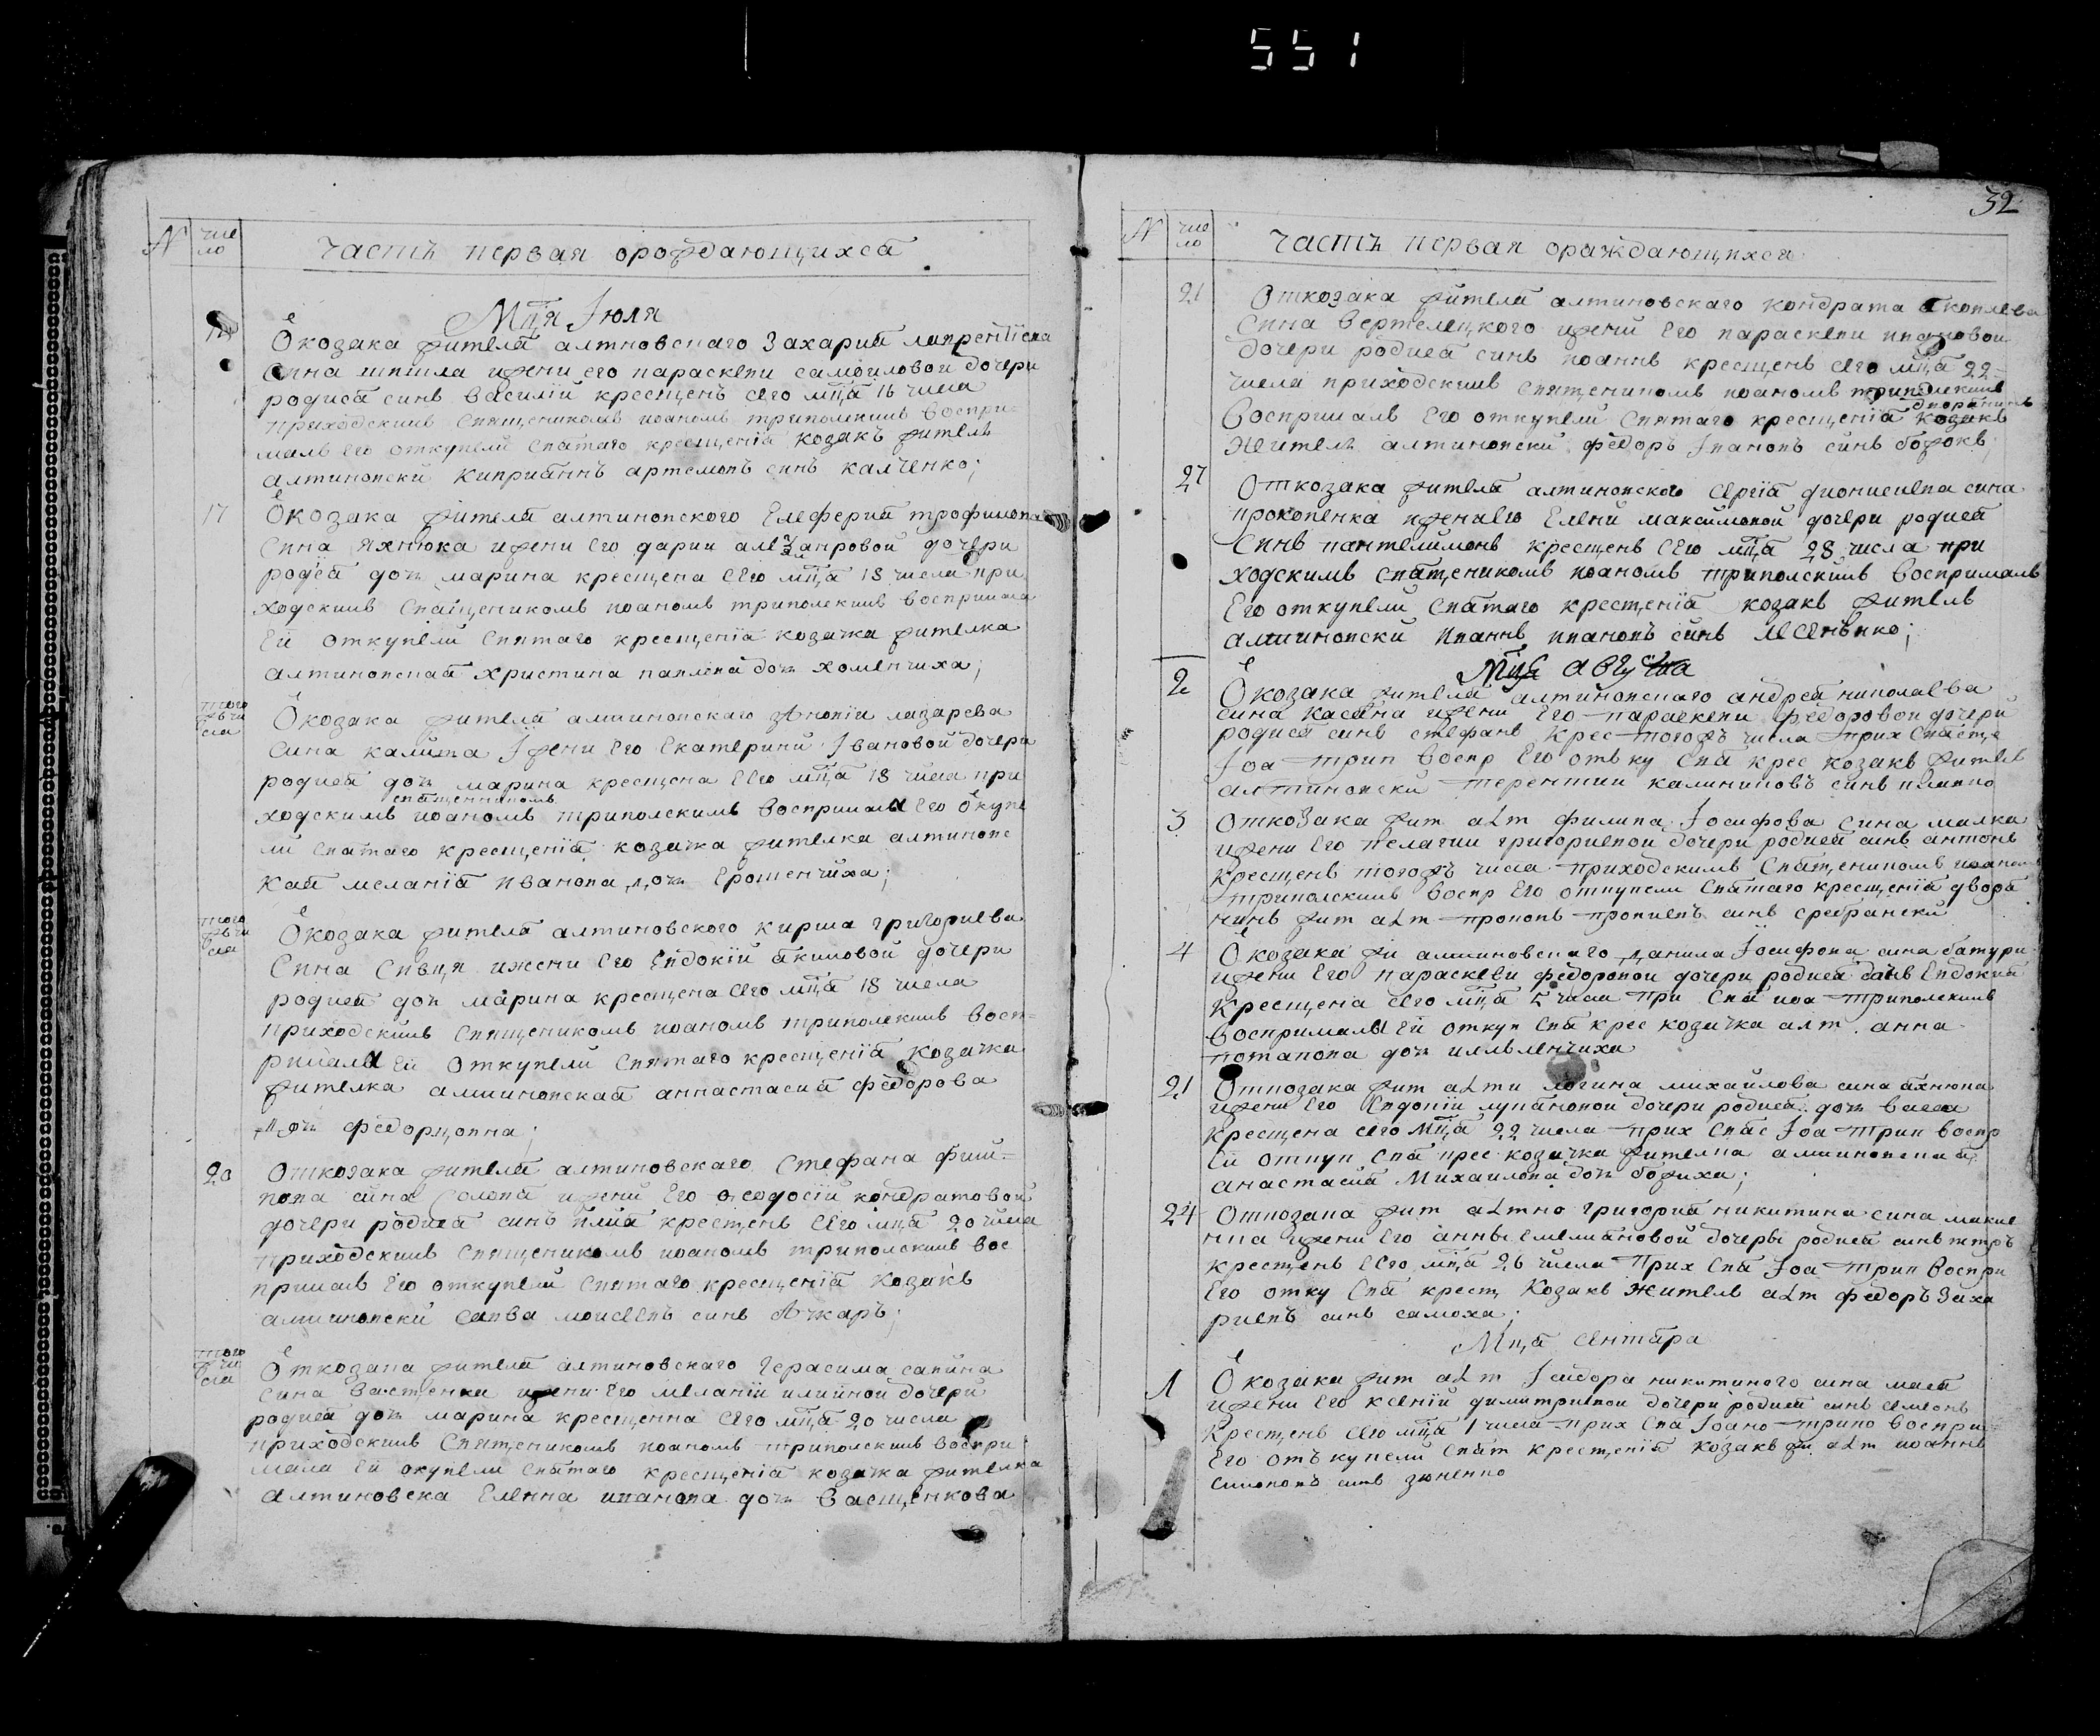 551
N
чис
ло
часть первая орождающихся
Мця Іюля
Ѿ козака жителя алтновскаго Захария лаврентіева
сина шпила и жени его параскеви самоиловои дочери
родился синъ василіи крещенъ сего мця 16 числа
приходскимъ священикомъ иоаномъ триполскимъ воспри-
малъ его откупели святаго крещенія козакъ житель
алтиновски Киприаннъ артемовъ синъ калченко;
17
Ѿ козака жителя алтиновского Елеферия трофимова
сина яхнюка и жени его дарии алеѯанровой дочери
родися дочъ марина крещена сего мця 18 числа при
ходскимъ священикомъ иоаномъ триполскимъ восприимала
Ей откупели святаго крещенія козачка жителка
алтиновская христина павлова дочъ хоменчиха;
того
жъ чи
сла
Ѿ козака жителя алтиновскаго зѣновіи лазарева
сина калита і жени Его Екатерини Івановой дочери
родися дочъ марина крещена сего мця 18 числа при
священикомъ
ходскимъ иоаномъ триполскимъ восприималы Его ѿкупе
ли святаго крещенія козачка жителка алтиновс
кая меланія Иванова дочъ Ерошенчиха;
того
жъ чи
сла
Ѿ козака жителя алтиновского кирила григориева
Сина Сивця и жени Его Евдокіи якимовой дочери
родися дочъ марина крещена сего мця 18 числа
приходскимъ священикомъ иоаномъ триполскимъ восп-
рималы Ей откупели святаго крещенія козачка
жителка алтиновская аннастасия федорова
дочъ федорцовна;
20
Откозака жителя алтиновскаго Стефана фили-
пова сина Солопа и жени Его ѳеодосіи кондратовой
дочери родися синъ илия крещенъ сего мця 20 числа
приходскимъ священикомъ иоаномъ триполскимъ вос
прималъ Его откупели святаго крещенія Козакъ
алтиновски савва моисеевъ синъ Ѧжаръ;
того
ж чи
сла
Ѿткозака жителя алтиновскаго Герасима савина
сина Ващенка и жени Его меланіи илииной дочери
родися дочъ марина крещенна сего мця 20 числа
приходскимъ Священикомъ иоаномъ триполскимъ воспри
мала Ей окупели святаго крещенія козачка жителка
алтиновска Еленна иванова дочъ Ващенкова
32
N
чис
ло
часть первая ораждающихся
21
Откозака жителя алтиновскаго Кондрата
Сина Вертелецкого и жени Его параскеви ивановои
дочери родися синъ иоаннъ крещенъ сего мця 22-
числа приходскимъ священикомъ иоаномъ триполскимъ
Воспрималъ Его откупели святаго крещенія козакъ
Жителъ алтиновски федоръ Івановъ синъ божокъ;
27
Откозака жителя алтиновского Сергія дионисиева сина
прокопенка и жени его Елени максимовой дочери родися
Синъ пантелимонъ крещенъ сего мця 28 числа при
ходскимъ священикомъ иоаномъ триполскимъ воспрималъ
Его откупели святаго крестенія козакъ жителъ
алтиновски Иваннъ ивановъ синъ
Мця августа
2
Ѿ козака жителя алтиновскаго андрея николаева
сина Касяна и жени Его параскеви федоровои дочери
родися синъ стефанъ крес тогожъ числа прих Свяще
Іоа трип воспр Его отъ ку Свя крес козакъ жителъ
алтиновски терентии калиниковъ синъ
3
Откозака жит алт филипа Іосифова сина малка
и жени Его пелагии григориевои дочери родися синъ антонъ
крещенъ тогожъ числа приходскимъ Священикомъ иоаномъ
триполскимъ воспр Его откупели Святаго крещенія дворя
нинъ жит алт синъ сребрански
4
Ѿ козака жи алтиновскаго данила Іосифова сина батури
и жени Его параскеви федоровои дочери родися Евдокия
Крещена сего мця 5 числа при Свя иоа триполскимъ
воспрималы Ей откуп Свя крес козачка алт анна
потапова дочъ
21
Откозака жит алти логина михаилова сина яхнюка
и жени Его Евдокіи дочери родися дочъ васса
крещена сего мця 22 числа прих Свяс Іоа трип воспр
Ей откуп Свя крес козачка жителка алтиновская
анастасия Михаилова дочъ божиха;
24
Откозака жит алтно григория никитина сина
и жени Его анны Емелияновой дочеры родися синъ петръ
крестенъ сего мця 26 числа Прих Свя Іоа трип воспри
Его отку Свя крест Козакъ Житель алт федоръ Заха
риевъ синъ самоха;
Мця сентября
1
Ѿ козака жит алт Ісидора никитиного сина
и жени Его ксении димитриевои дочери родися синъ семеонъ
Крестенъ сего мця 1 числа прих Свя Іоано трипо воспри
Его отъ купели Свят крестенія Козакъ жи алт иоаннъ
симоновъ синъ зюненко